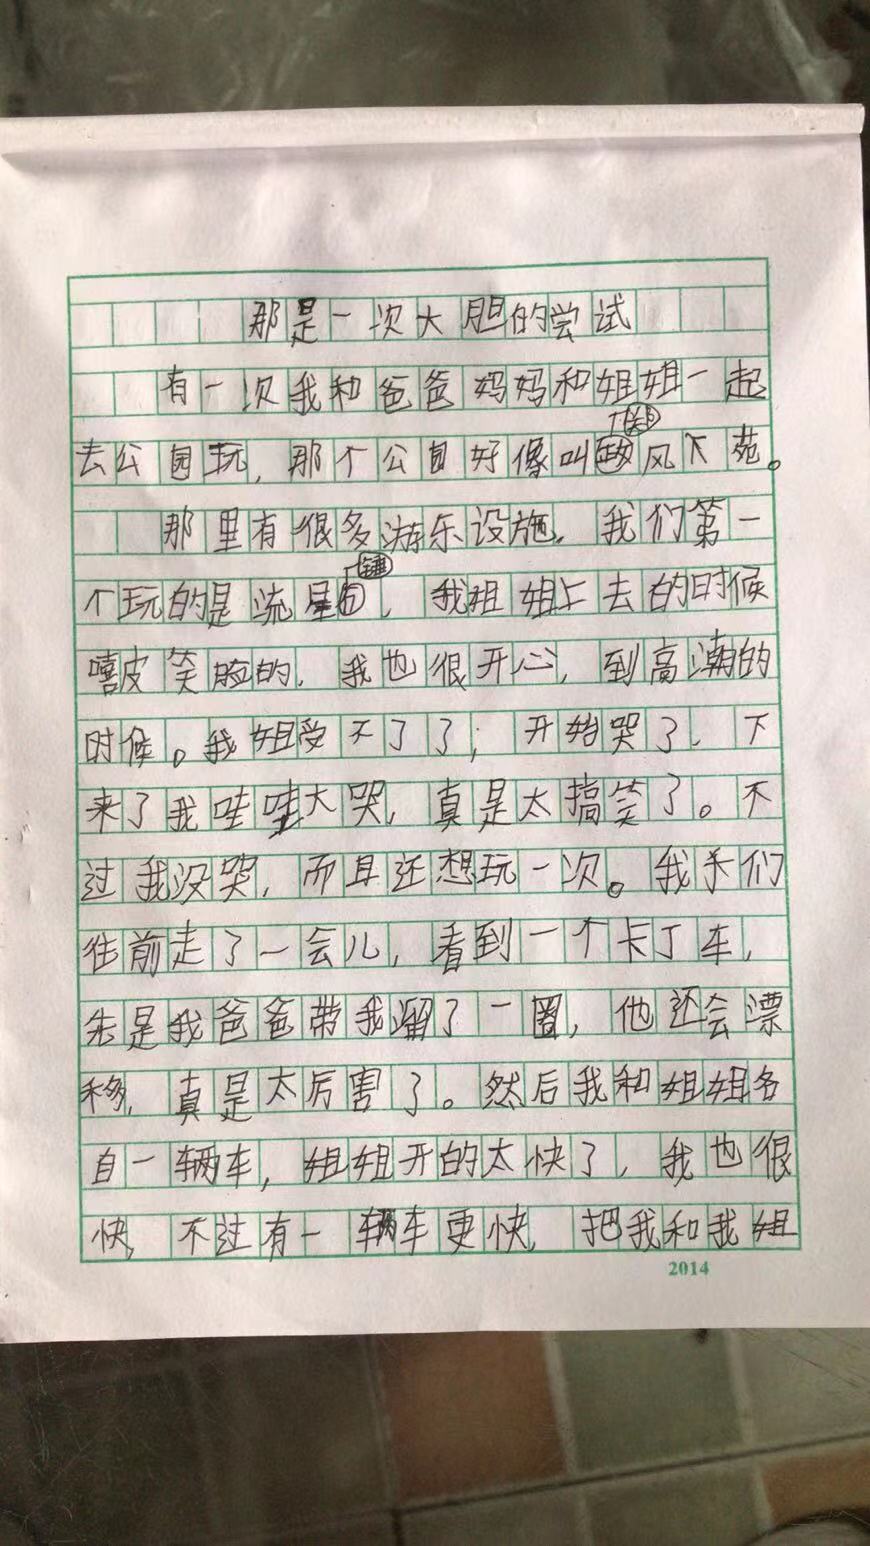 那是一次大胆的尝试
有一次我和爸爸妈妈和姐姐一起
去公园玩，那个公园好像叫风下苑。
那里有很多游乐设施。我们第一
锤
个玩的是流星，我姐姐上去的时候
嘻皮笑脸的，我也很开心，到高潮的
时候。我姐受不了了，开始哭了，下
来了我哇哇大哭，真是太搞笑了。不
过我没哭，而且还想玩一次。我们
往前走了一会儿，看到一个卡丁车，
先是我爸爸带我溜了一圈，他还会漂
移，真是太厉害了。然后我和姐姐各
自一辆车，姐姐开的太快了，我也很
快，不过有一辆车更快，把我和我姐
2014